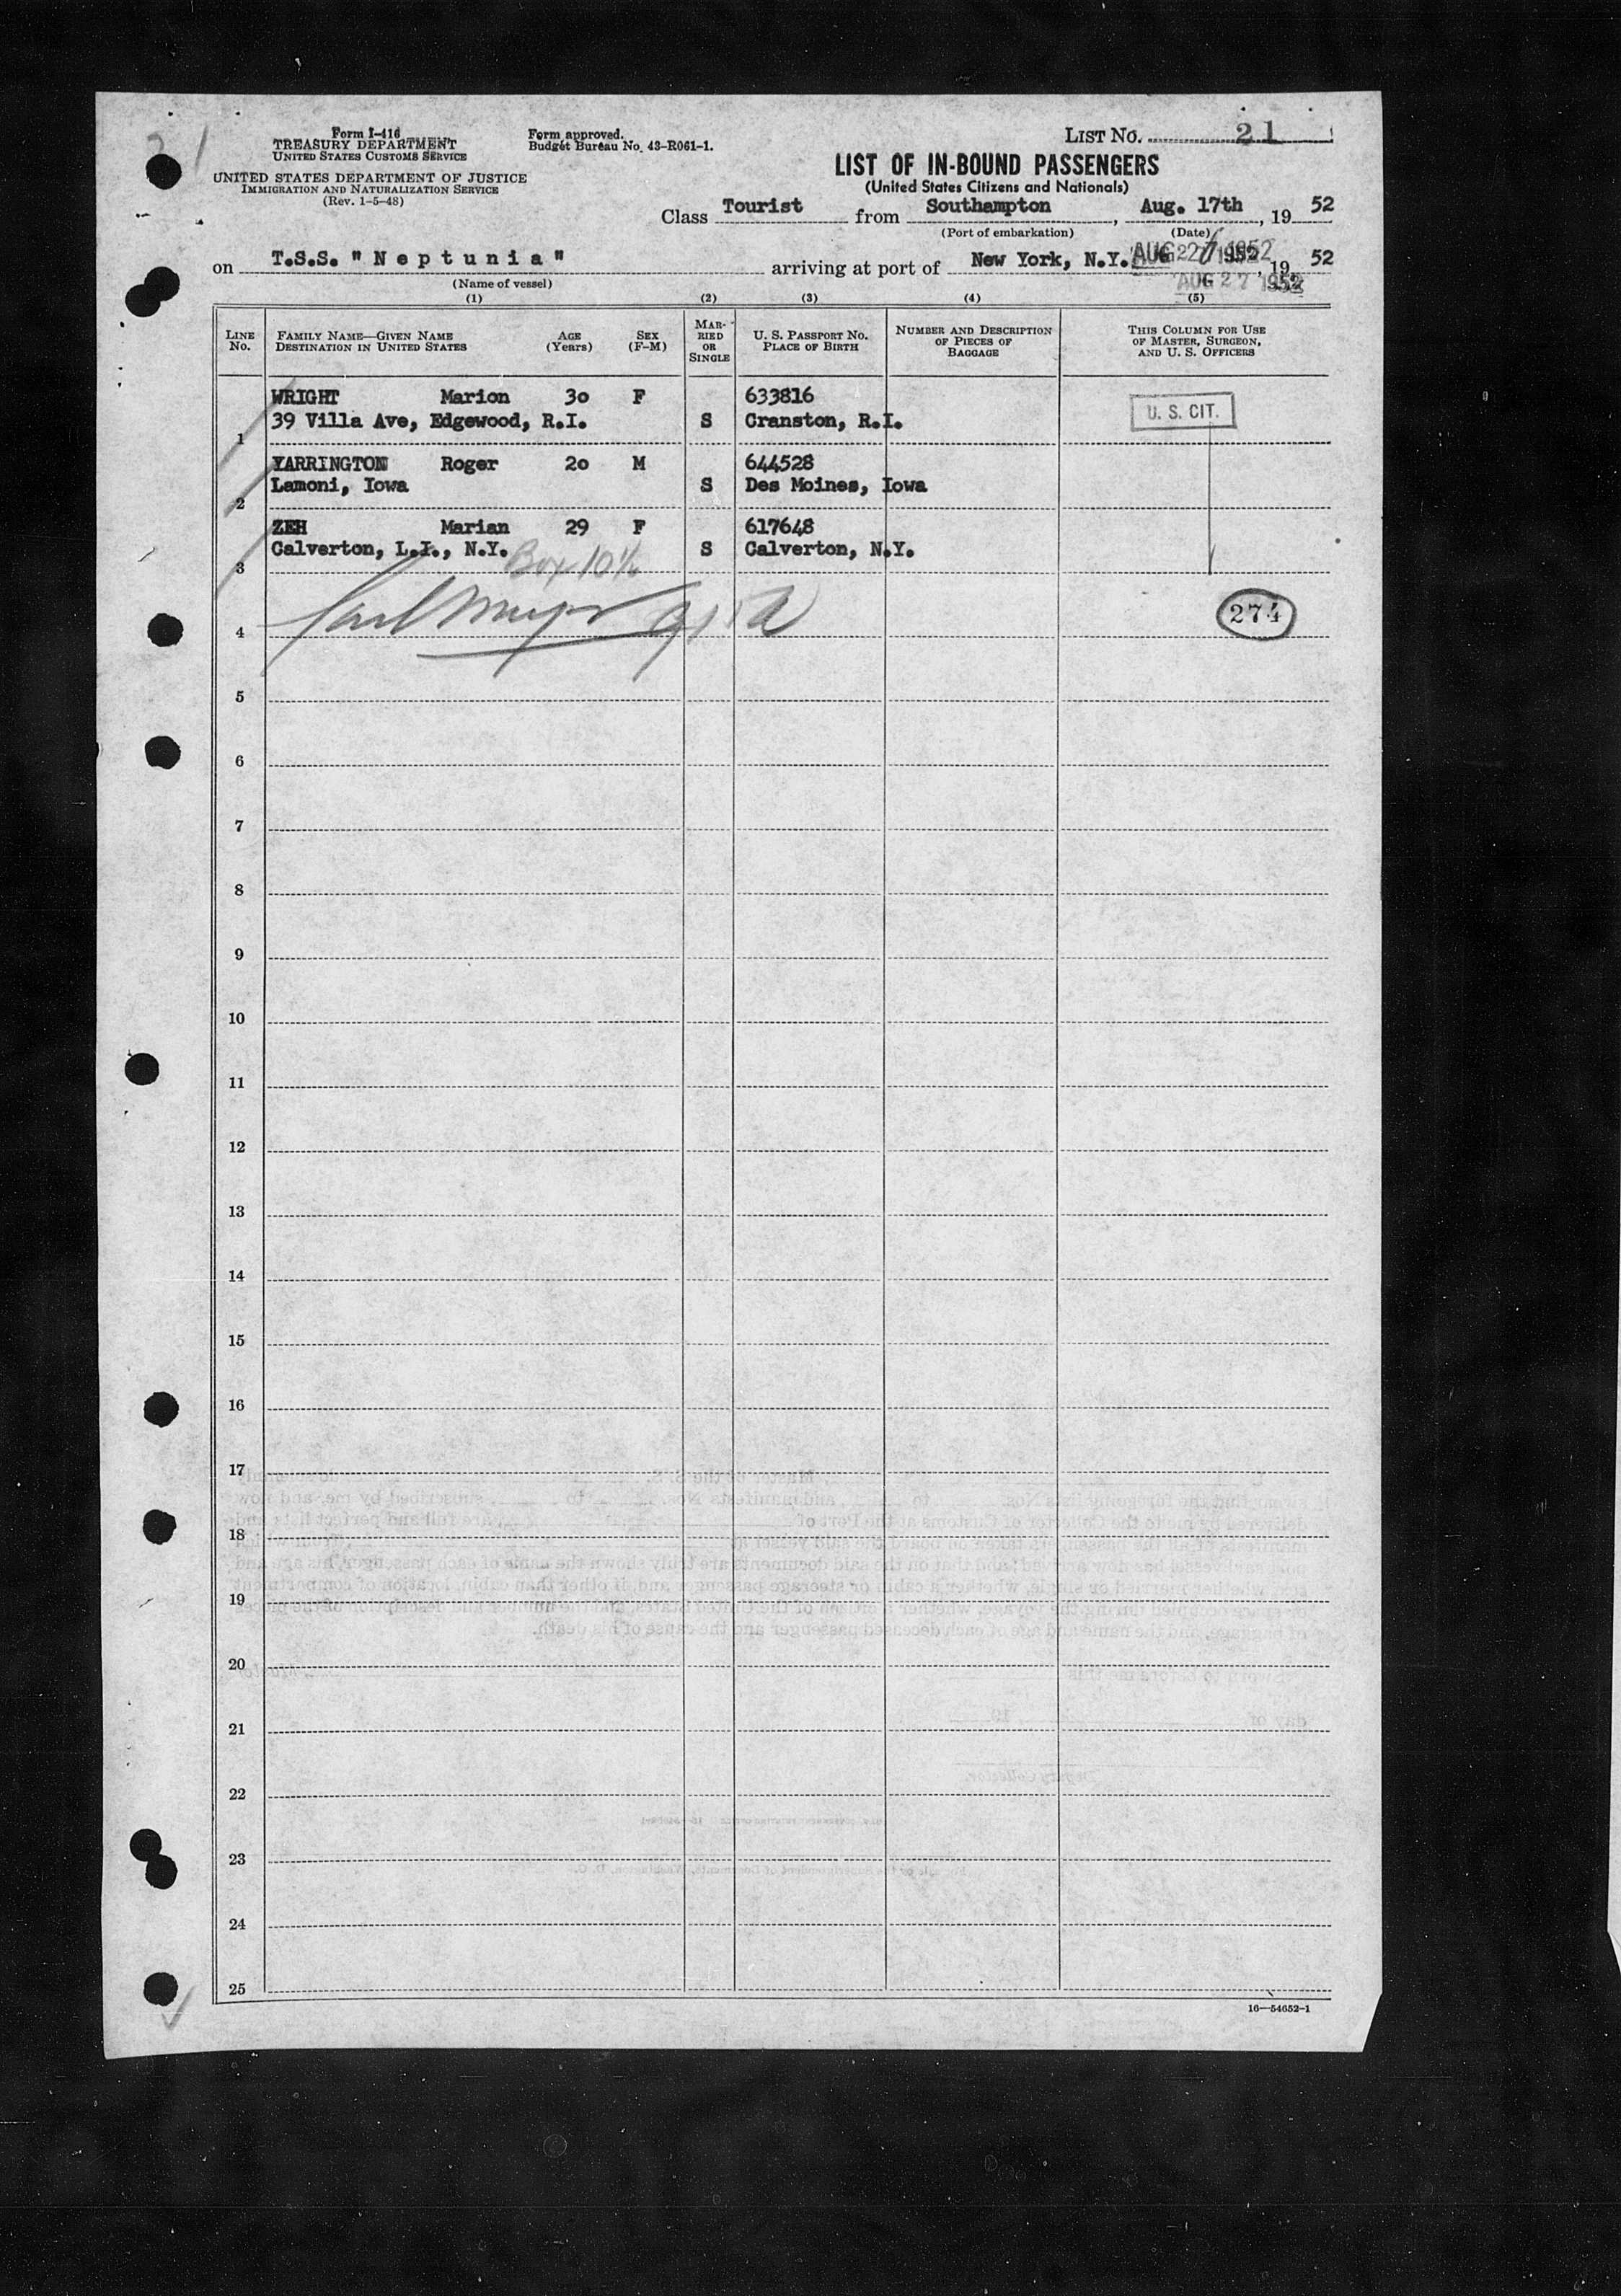 Form I-416
TREASURY DEPARTMENT
UNITED STATES CUSTOMS SERVICE
UNITED STATES DEPARTMENT OF JUSTICE
IMMIGRATION AND NATURALIZATION SERVICE
(Rev. 1-5-48)
Form approved.
Budget Bureau No. 43-R061-1.
LIST NO. 21
LIST OF IN-BOUND PASSENGERS
(United States Citizens and Nationals)
Class Tourist from Southampton, Aug. 17th, 19 52
(Port of embarkation) (Date)
on T.S.S. "Neptunia" arriving at port of New York, N.Y. AUG 27 1952, 19 52
(Name of vessel) AUG 27 1952
(1) (2) (3) (4) (5)
LINE No. FAMILY NAME—GIVEN NAME DESTINATION IN UNITED STATES AGE (Years) SEX (F-M) MARRIED OR SINGLE U. S. PASSPORT NO. PLACE OF BIRTH NUMBER AND DESCRIPTION OF PIECES OF BAGGAGE THIS COLUMN FOR USE OF MASTER, SURGEON, AND U. S. OFFICERS
WRIGHT Marion 30 F 633816
1 39 Villa Ave, Edgewood, R.I. S Cranston, R.I. U. S. CIT.
YARRINGTON Roger 20 M 644528
2 Lamoni, Iowa S Des Moines, Iowa
ZEH Marian 29 F 617648
3 Calverton, L.I., N.Y. Box 10 S Calverton, N.Y.
4 274
5
6
7
8
9
10
11
12
13
14
15
16
17
18
19
20
21
22
23
24
25
16—54652-1